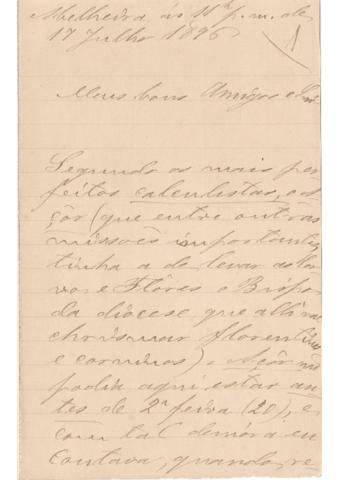 Abelheira, ás 11h p.m. de
17 Julho 1896
1
Meus bons Amigos e
Segundo os mais per
feitos calculistas, o A
çôr (que entre outras
missões importantes
tinha a de levar ao Cor
vo e Flôres o Bispo
da diocese que alli vae
chrismar florentinos
e corvinos) o Açôr não
podia aqui estar an
tes de 2ª feira (20), e
com tal demóra eu
contava, quando, re